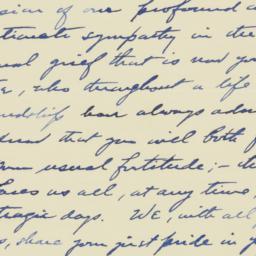 sion of our profound a
timate sympathy in the
ual grief that is now you
e, who throughout a life
endship have always ador
sured that you will both f
your usual fortitude; - the
faces us all, at any time,
tragic days. We, with all
s, share your just pride in y